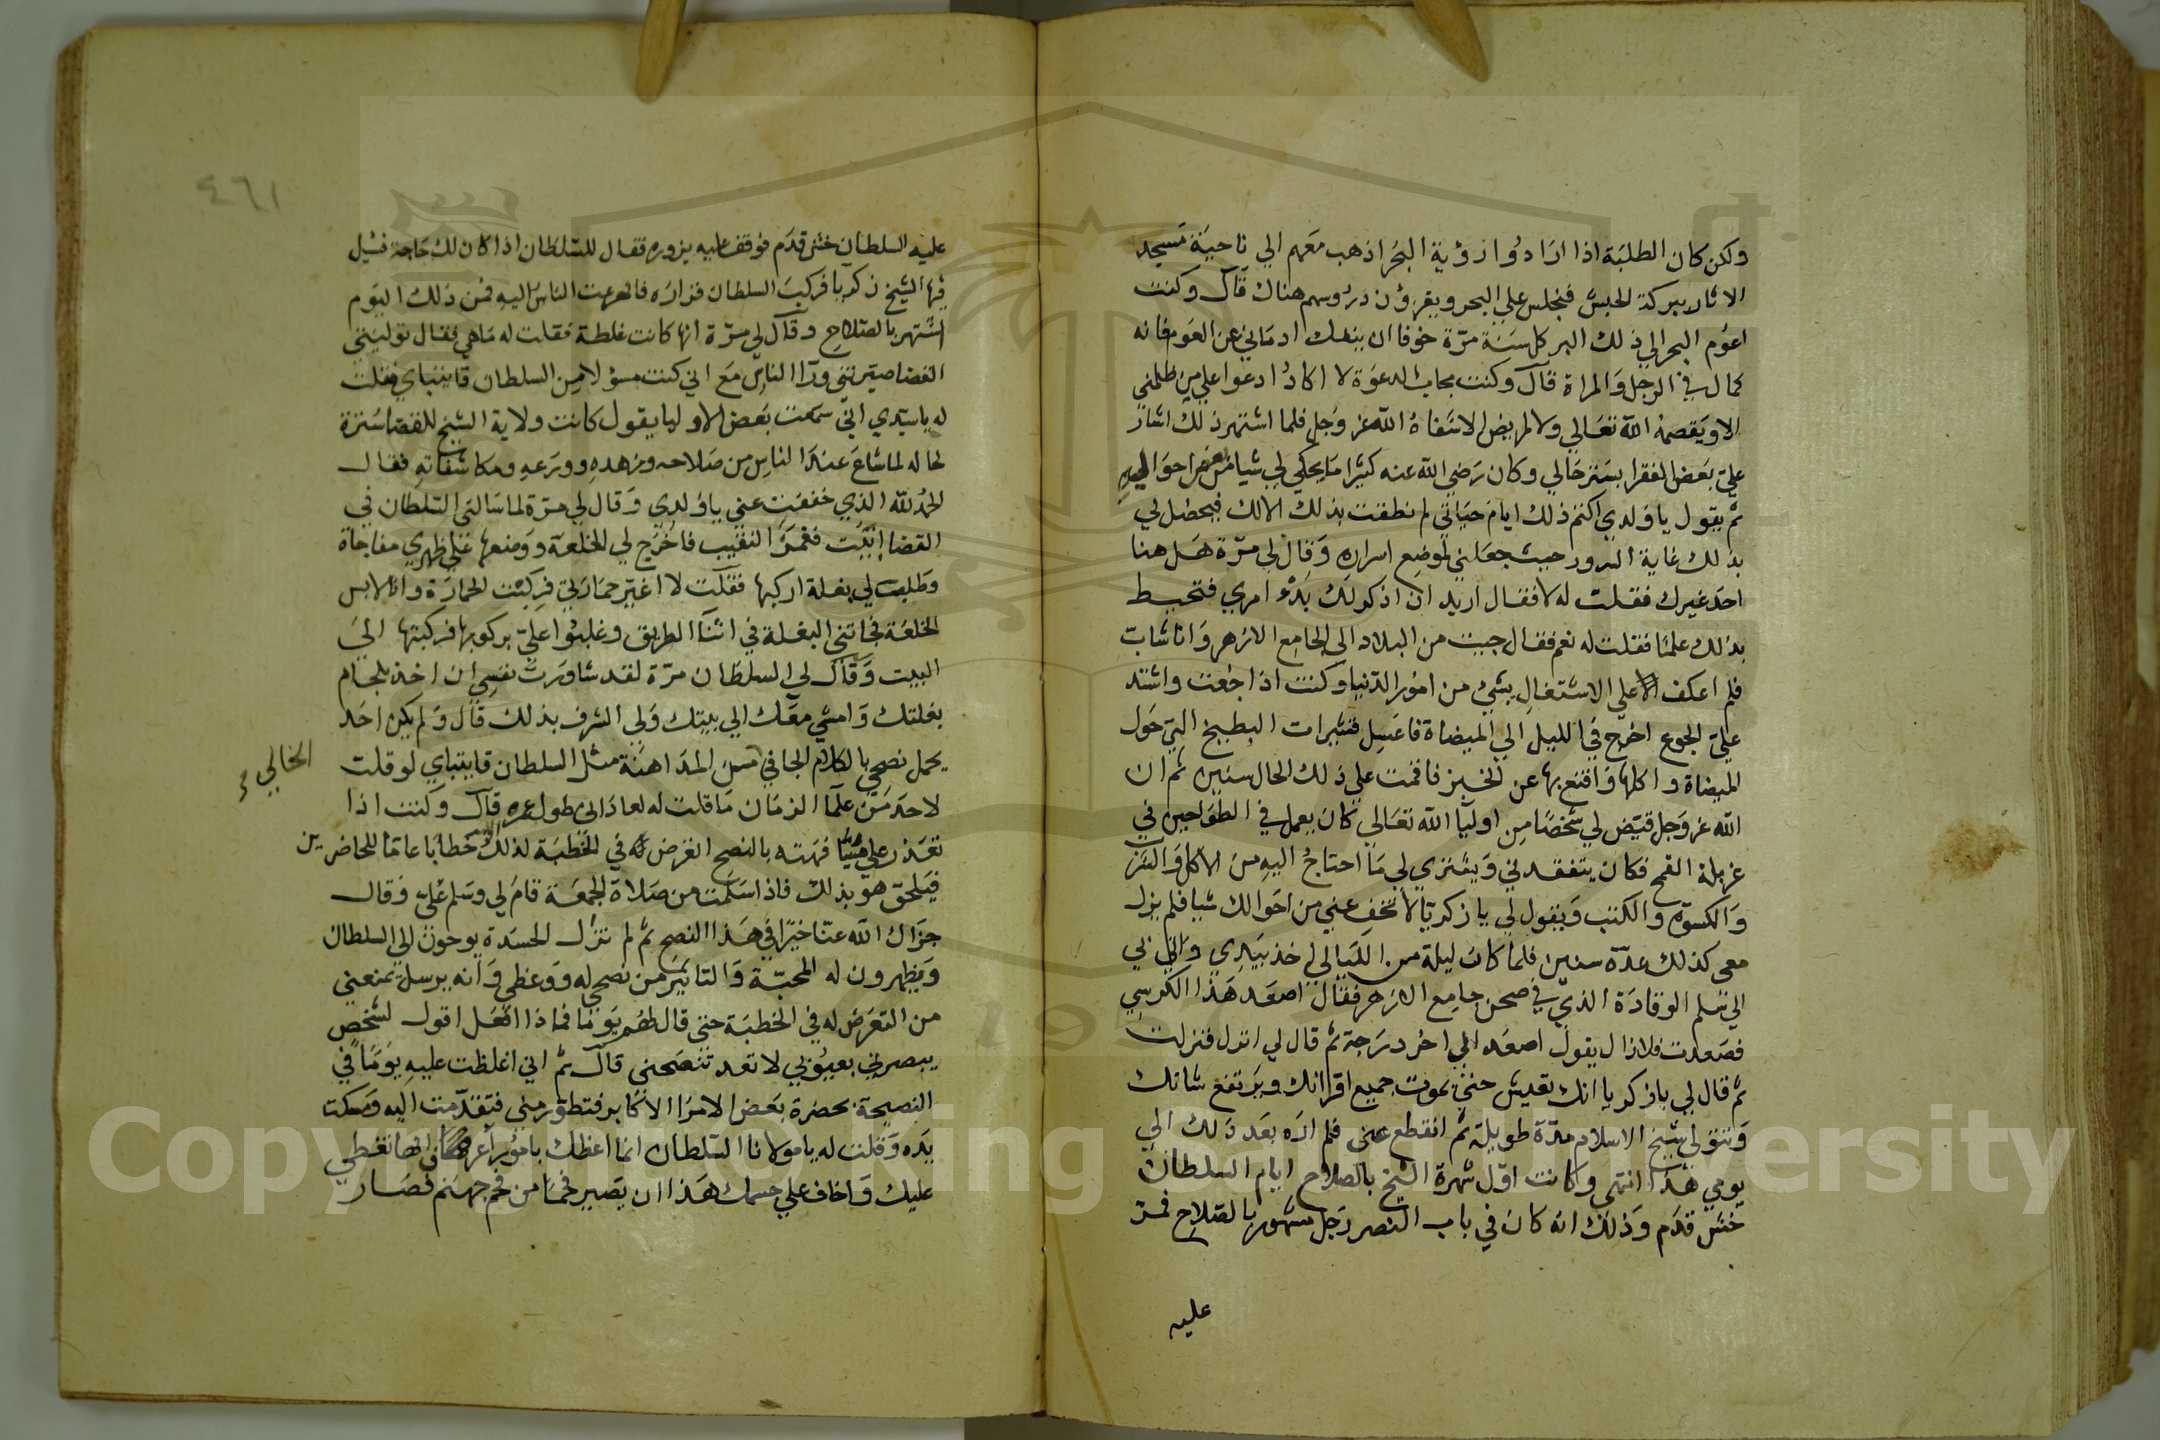 ولكن كان الطلبة اذا ارادوا رؤية البحر اذهب معهم الي ناحية مسجد
الاثار ببركة الحبش فنجلس علي البحر ويقرؤن دروسهم هناك قال وكنت
اعوم البحر الي ذلك البر كل سنة مرة خوفا ان ينفك ادماني عن العوم فانه
كمال في الرجل والمراة قال وكنت مجاب الدعوة لا اكاد ادعوا علي من ظلمني
الا ويقصمه الله تعالي ولا لمريض الا شفاه الله عز وجل فلما اشتهر ذلك اشار
علي بعض الفقرا بستر حالي وكان رضي الله عنه كثيرا ما يحكي لي شيا من احواله
ثم يقول يا ولدي اكتم ذلك ايام حياتي لم نطقت بذلك الا لك فيحصل لي
بذلك غاية السرور حيث جعلني لموضع اسراره وقال لي مرة هل هنا
احد غيرك فقلت له لا فقال اريد ان اذكر لك بدء امري فتحيط
بذلك علما فقلت له نعم فقال جيت من البلاد الي الجامع الازهر وانا شاب
فلم اعكف الا علي الاشتغال بشئ من امور الدنيا وكنت اذا جعت واشتد
علي الجوع اخرج في الليل الي الميضاة فاغسل قشيرات البطيخ التي حول
الميضاة واكلها واقنع بها عن الخبز فاقمت علي ذلك الحال سنين ثم ان
الله عز وجل قيض لي شخصا من اوليا الله تعالي كان يعمل في الطواحين في
غربلة القمح فكان يتفقدني ويشتري لي ما احتاج اليه من الاكل والشرب
والكسوة والكتب ويقول لي يا زكريا لا تخف عني من احوالك شيا فلم يزل
معي كذلك عدة سنين فلما كان ليلة من الليالي اخذ بيدي واتي بي
الي سلم الوقادة الذي في صحن جامع الازهر فقال اصعد هذا الكرسي
فصعدت فلا زال يقول اصعد الي اخر درجة ثم قال لي انزل فنزلت
ثم قال لي يا زكريا انك تعيش حتي يموت جميع اقرانك ويرتفع شانك
وتتولي شيخ الاسلام مدة طويلة ثم انقطع عني فلم اره بعد ذلك الي
يومي هذا انتهي وكانت اول شهرة الشيخ بالصلاح ايام السلطان
خشقدم وذلك انه كان في باب النصر رجل مشهور بالصلاح فمر
عليه
٤٦١
عليه السلطان خشقدم فوقف عليه يزوره فقال للسلطان اذا كان لك حاجة فسل
فيها الشيخ زكريا فركب السلطان فزاره فانهرعت الناس اليه فمن ذلك اليوم
اشتهر بالصلاح وقال لي مرة انها كانت غلطة فقلت له ما هي فقال توليتي
القضا صيرتني ورا الناس مع اني كنت مسؤلا من السلطان قايتباي فقلت
له يا سيدي اني سمعت بعض الاوليا يقول كانت ولاية الشيخ للقضا سترة
لحاله لما شاع عند الناس من صلاحه وزهده وورعه ومكاشفاته فقال
الحمد لله الذي خففت عني يا ولدي وقال لي مرة لما سالني السلطان في
القضا ابيت فغمز النقيب فاخرج لي الخلعة ووضعها علي ظهري مفاجاة
وطلبت لي بغلة اركبها فقلت لا اغير حمارتي فركبت الحمارة وانا لابس
الخلعة فجاتني البغلة في اثنا الطريق وغلبوا علي بركوبها فركبتها الي
البيت وقال لي السلطان مرة لقد شاورت نفسي ان اخذ بلجام
بغلتك وامشي معك الي بيتك ولي الشرف بذلك قال ولم يكن احد
يحمل نصحي بالكلام الجافي من المداهنة مثل السلطان قايتباي لو قلت
الخالي
لاحد من علما الزمان ما قلت له لعاداني طول عمره قال وكنت اذا
تعذر علي فيه بالنصح اتعرض له في الخطبة لذلك خطابا عاما للحاضرين
فيلحق هو بذلك فاذا سلمت من صلاة الجمعة قام لي وسلم علي وقال
جزاك الله عنا خيرا في هذا النصح ثم لم تزل الحسدة يوحون الي السلطان
ويظهرون له المحبة والتاثير من نصحي له ووعظي وانه يرسل يمنعني
من التعرض له في الخطبة حتي قال لهم يوما فماذا افعل اقول لشخص
يبصرني بعيوبي لا تعد تنصحني قال ثم اني اغلظت عليه يوما في
النصيحة بحضرة بعض الامرا الاكابر فتطور مني فتقدمت اليه ومسكت
يده وقلت له يا مولانا السلطان انما اعظك بامور اعرف انها تغطي
عليك واخاف علي جسمك هذا ان يصير فحما من فحم جهنم فصار
Copyright © King Saud University
1957